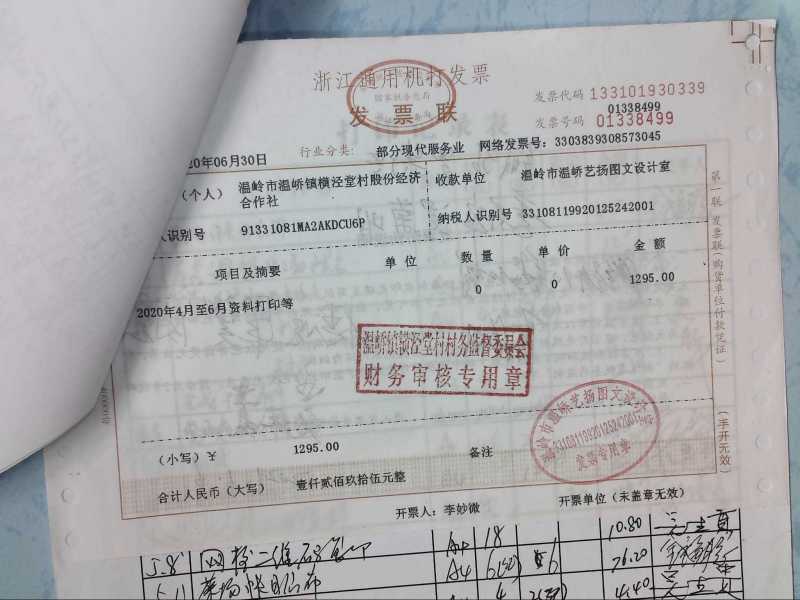 浙江通用机打发票
国家税务总局
发票联
发票代码 133101930339
01338499
发票号码 01338499
20年06月30日
行业分类: 部分现代服务业 网络发票号: 3303839308573045
(个人) 温岭市温峤镇横泾堂村股份经济合作社
收款单位 温岭市温峤艺扬图文设计室
人识别号 91331081MA2AKDCU6P
纳税人识别号 33108119920125242001
项目及摘要 单位 数量 单价 金额
2020年4月至6月资料打印等 0 0 1295.00
温峤镇横泾堂村村务监督委员会
财务审核专用章
温岭市温峤艺扬图文设计室
33108119920125242001
发票专用章
(小写) ¥ 1295.00 备注
合计人民币(大写) 壹仟贰佰玖拾伍元整
开票人: 李妙微 开票单位(未盖章无效)
第一联 发票联(购货单位付款凭证)
(手开无效)
5.8 A4 18 10.80
A4 6 76.20
5.11 4 4.40